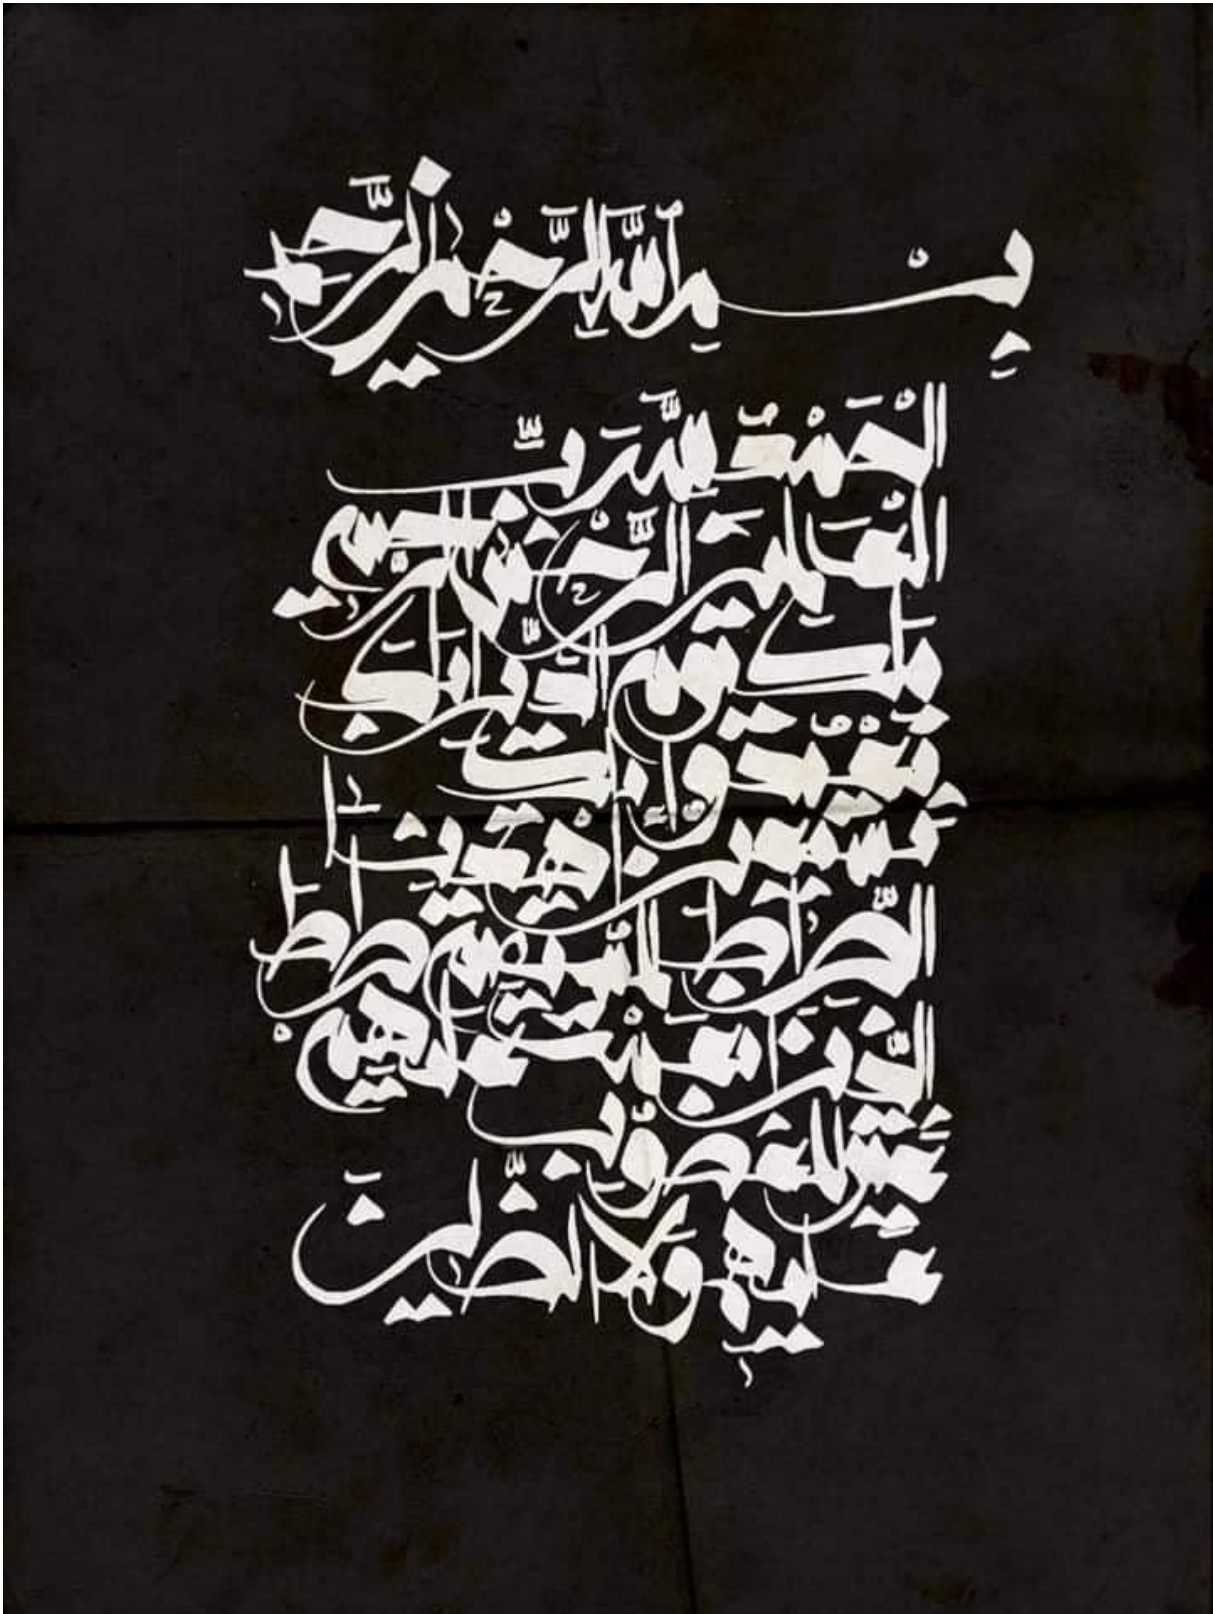 بِسْمِ ٱللَّهِ الرَّحْمَٰنِ الرَّحِيمِ
الْحَمْدُ لِلَّهِ رَبِّ
الْعَالَمِينَ الرَّحْمَٰنِ الرَّحِيمِ
مَالِكِ يَوْمِ الدِّينِ إِيَّاكَ
نَعْبُدُ وَإِيَّاكَ
نَسْتَعِينُ اهْدِنَا
الصِّرَاطَ الْمُسْتَقِيمَ صِرَاطَ
الَّذِينَ أَنْعَمْتَ عَلَيْهِمْ
غَيْرِ الْمَغْضُوبِ
عَلَيْهِمْ وَلَا الضَّالِّينَ